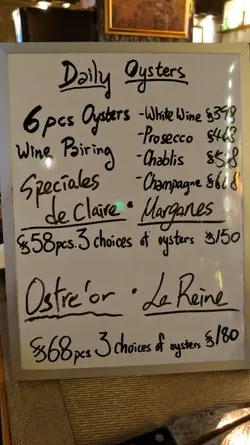 Daily Oysters
6pcs Oysters
Wine Pairing
- White Wine $398
- Prosecco $468
- Chablis $518
- Champagne $668
Speciales
de Claire • Marganes
$58pcs. 3 choices of oysters $150
Ostre'or • La Reine
$68pcs 3 choices of oysters $180